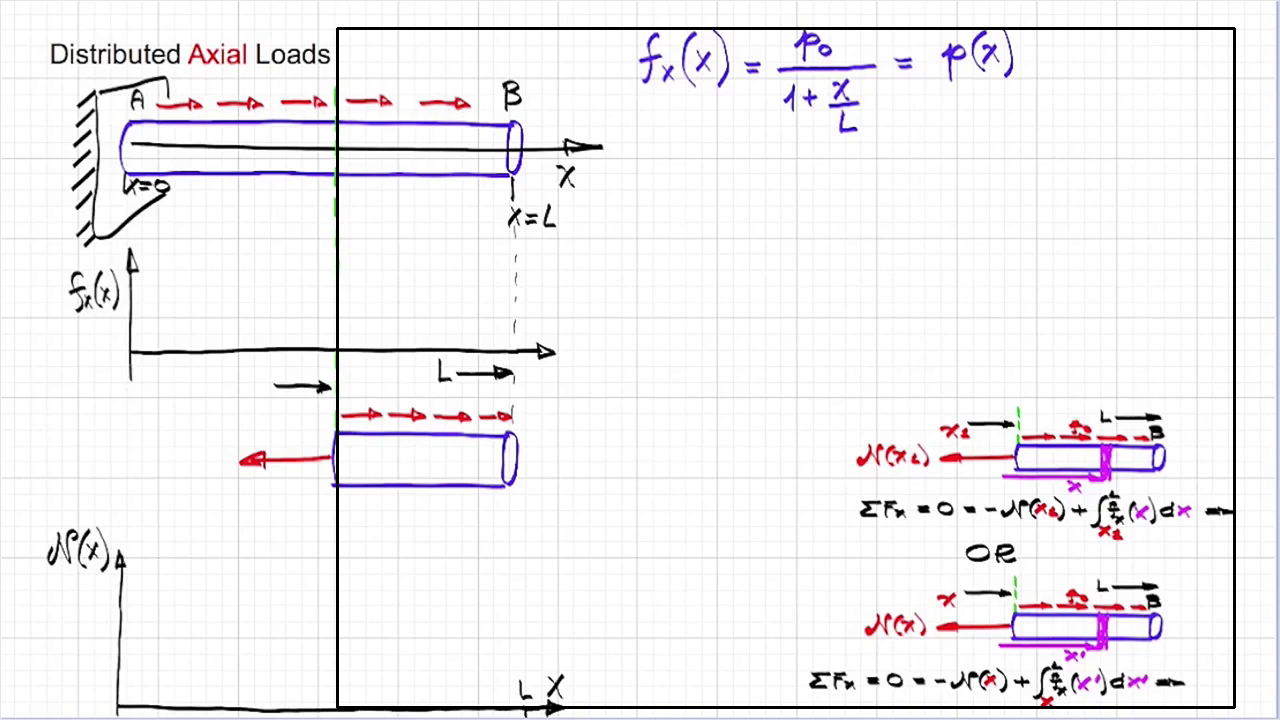 Distributed Axial Loads
f_x(x) = p_0 / (1 + x/L) = p(x)
A
B
x=0
X
x=L
f_x(x)
L
x_1
L
B
N(x_1)
x
ΣF_x = 0 = -N(x_1) + ∫_{x_1}^{L} f_x(x)dx
OR
N(x)
x
L
B
N(x)
x'
ΣF_x = 0 = -N(x) + ∫_x^L f_x(x')dx'
L X